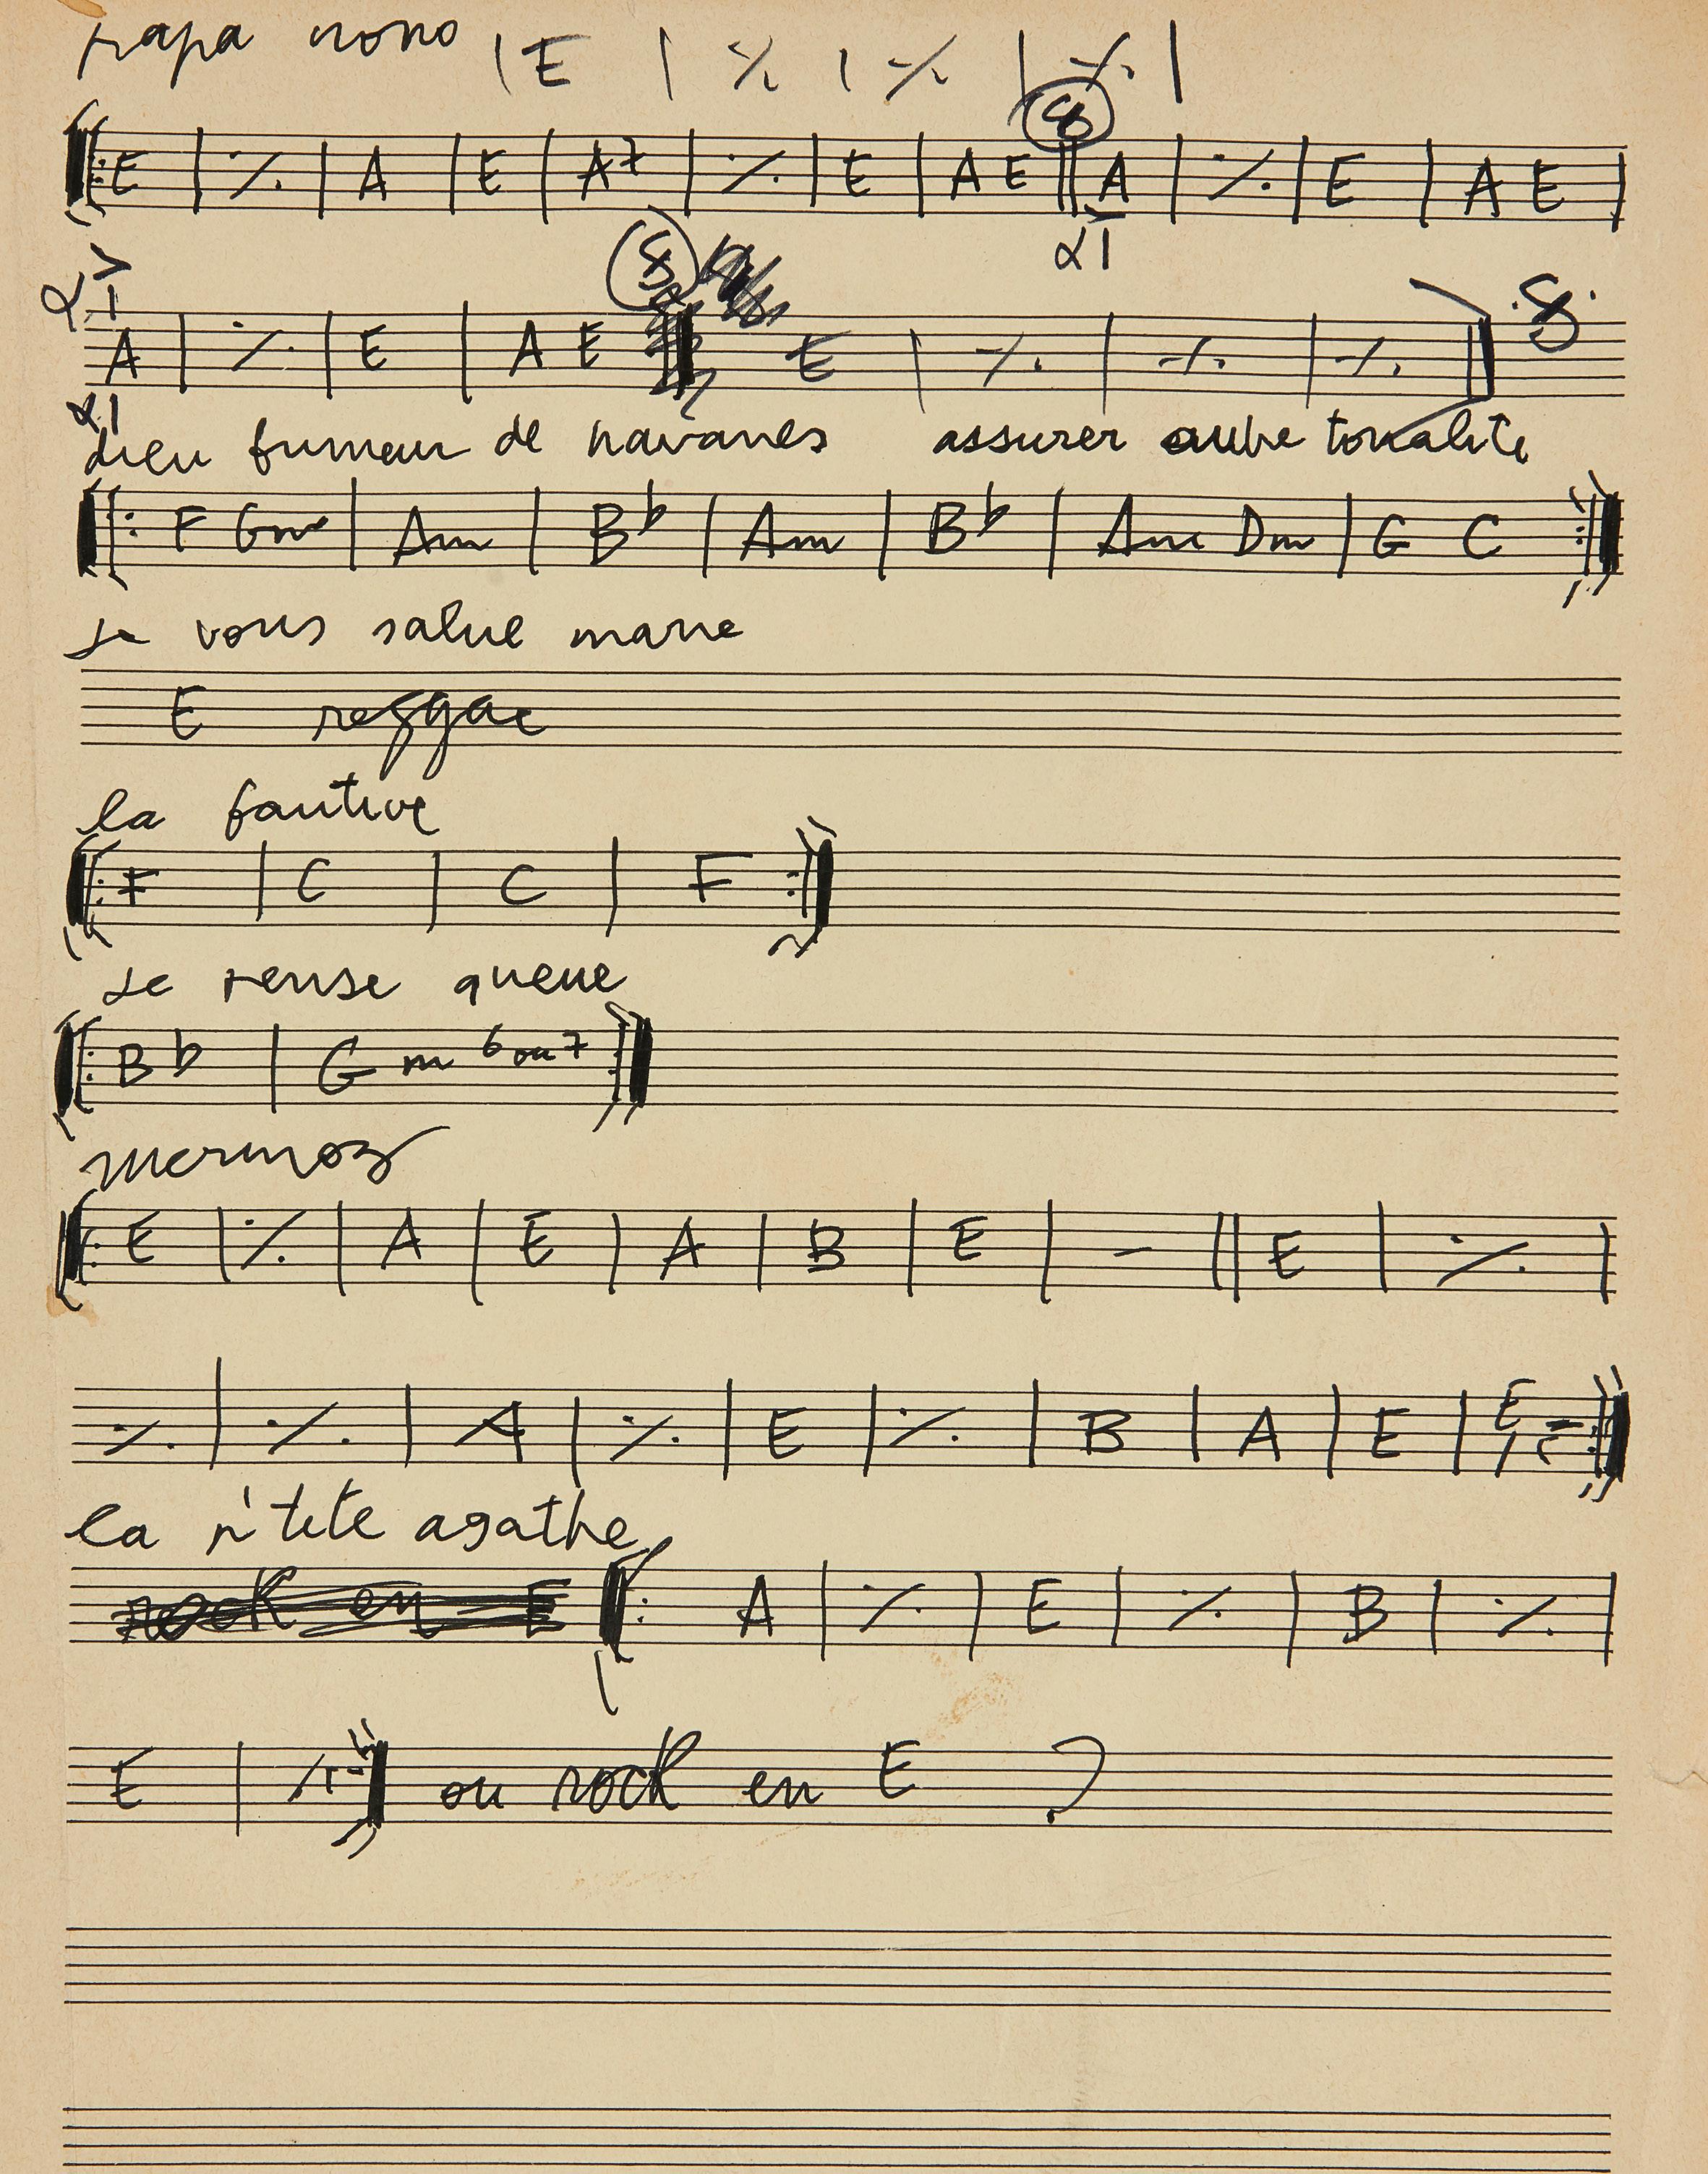 papa nono | E | ٪ | ٪ | ٪ |
8
E | ٪ | A | E | A7 | ٪ | E | A E || A | ٪ | E | A E |
8
A | ٪ | E | A E E | ٪ | ٪ | ٪ || .8.
dieu fumeur de havanes assurer autre tonalite
|: F Gm | Am | B♭ | Am | B♭ | Am Dm | G C :|
je vous salue marie
E reggae
la fautive
|: F | C | C | F :|
je pense queue
|: B♭ | Gm 6 ou 7 :|
mermoz
|: E | ٪ | A | E | A | B | E | – || E | ٪ |
٪ | ٪ | A | ٪ | E | ٪ | B | A | E | E :|
la p'tite agathe
rock en E |: A | ٪ | E | ٪ | B | ٪ |
E | ٪ :| ou rock en E ?